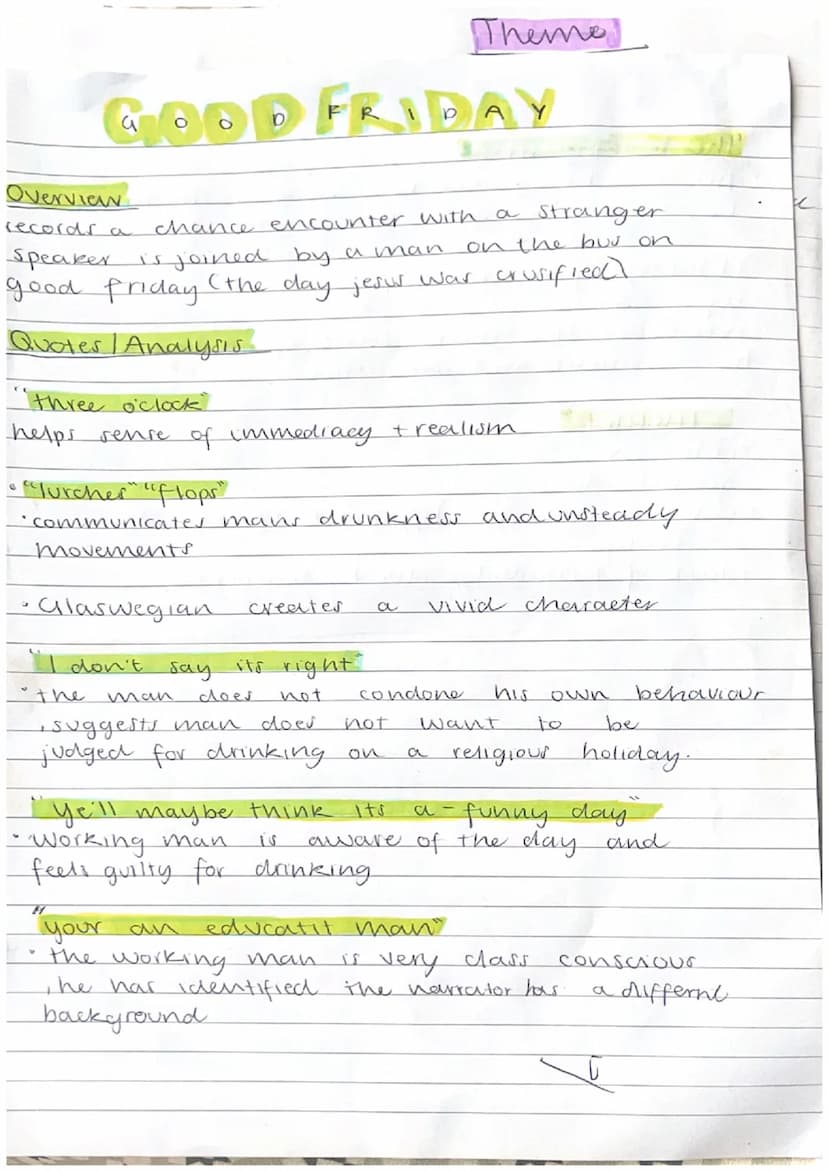 Theme
GOOD FRIDAY
Overview
records a chance encounter with a stranger
speaker is joined by a man on the bus on
good friday (the day jesus was crusified)
Quotes/Analysis
"three o'clock"
helps sense of immediacy + realism
• "lurches" "flops"
• communicates mans drunkness and unsteady
movements
• Glaswegian creates a vivid character
"I don't say its right"
• the man does not condone his own behaviour
, suggests man does not want to be
judged for drinking on a religious holiday.
"ye'll maybe think its a - funny day"
• working man is aware of the day and
feels guilty for drinking
"your an educatit man"
• the working man is very class conscious
, he has identified the narrator has a differnt
background